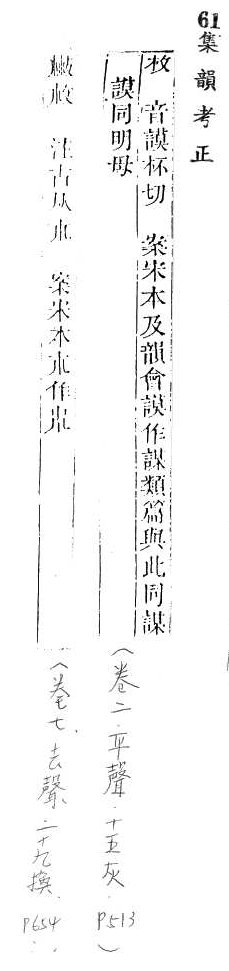 61集韻考正
枚 音謨杯切 案宋本及韻會謨作謀類篇與此同謀
謨同明母
（卷二．平聲．十五灰． P513）
㪔 注古从𣏟 案宋本𣏟作
（卷七．去聲．二十九換． P654